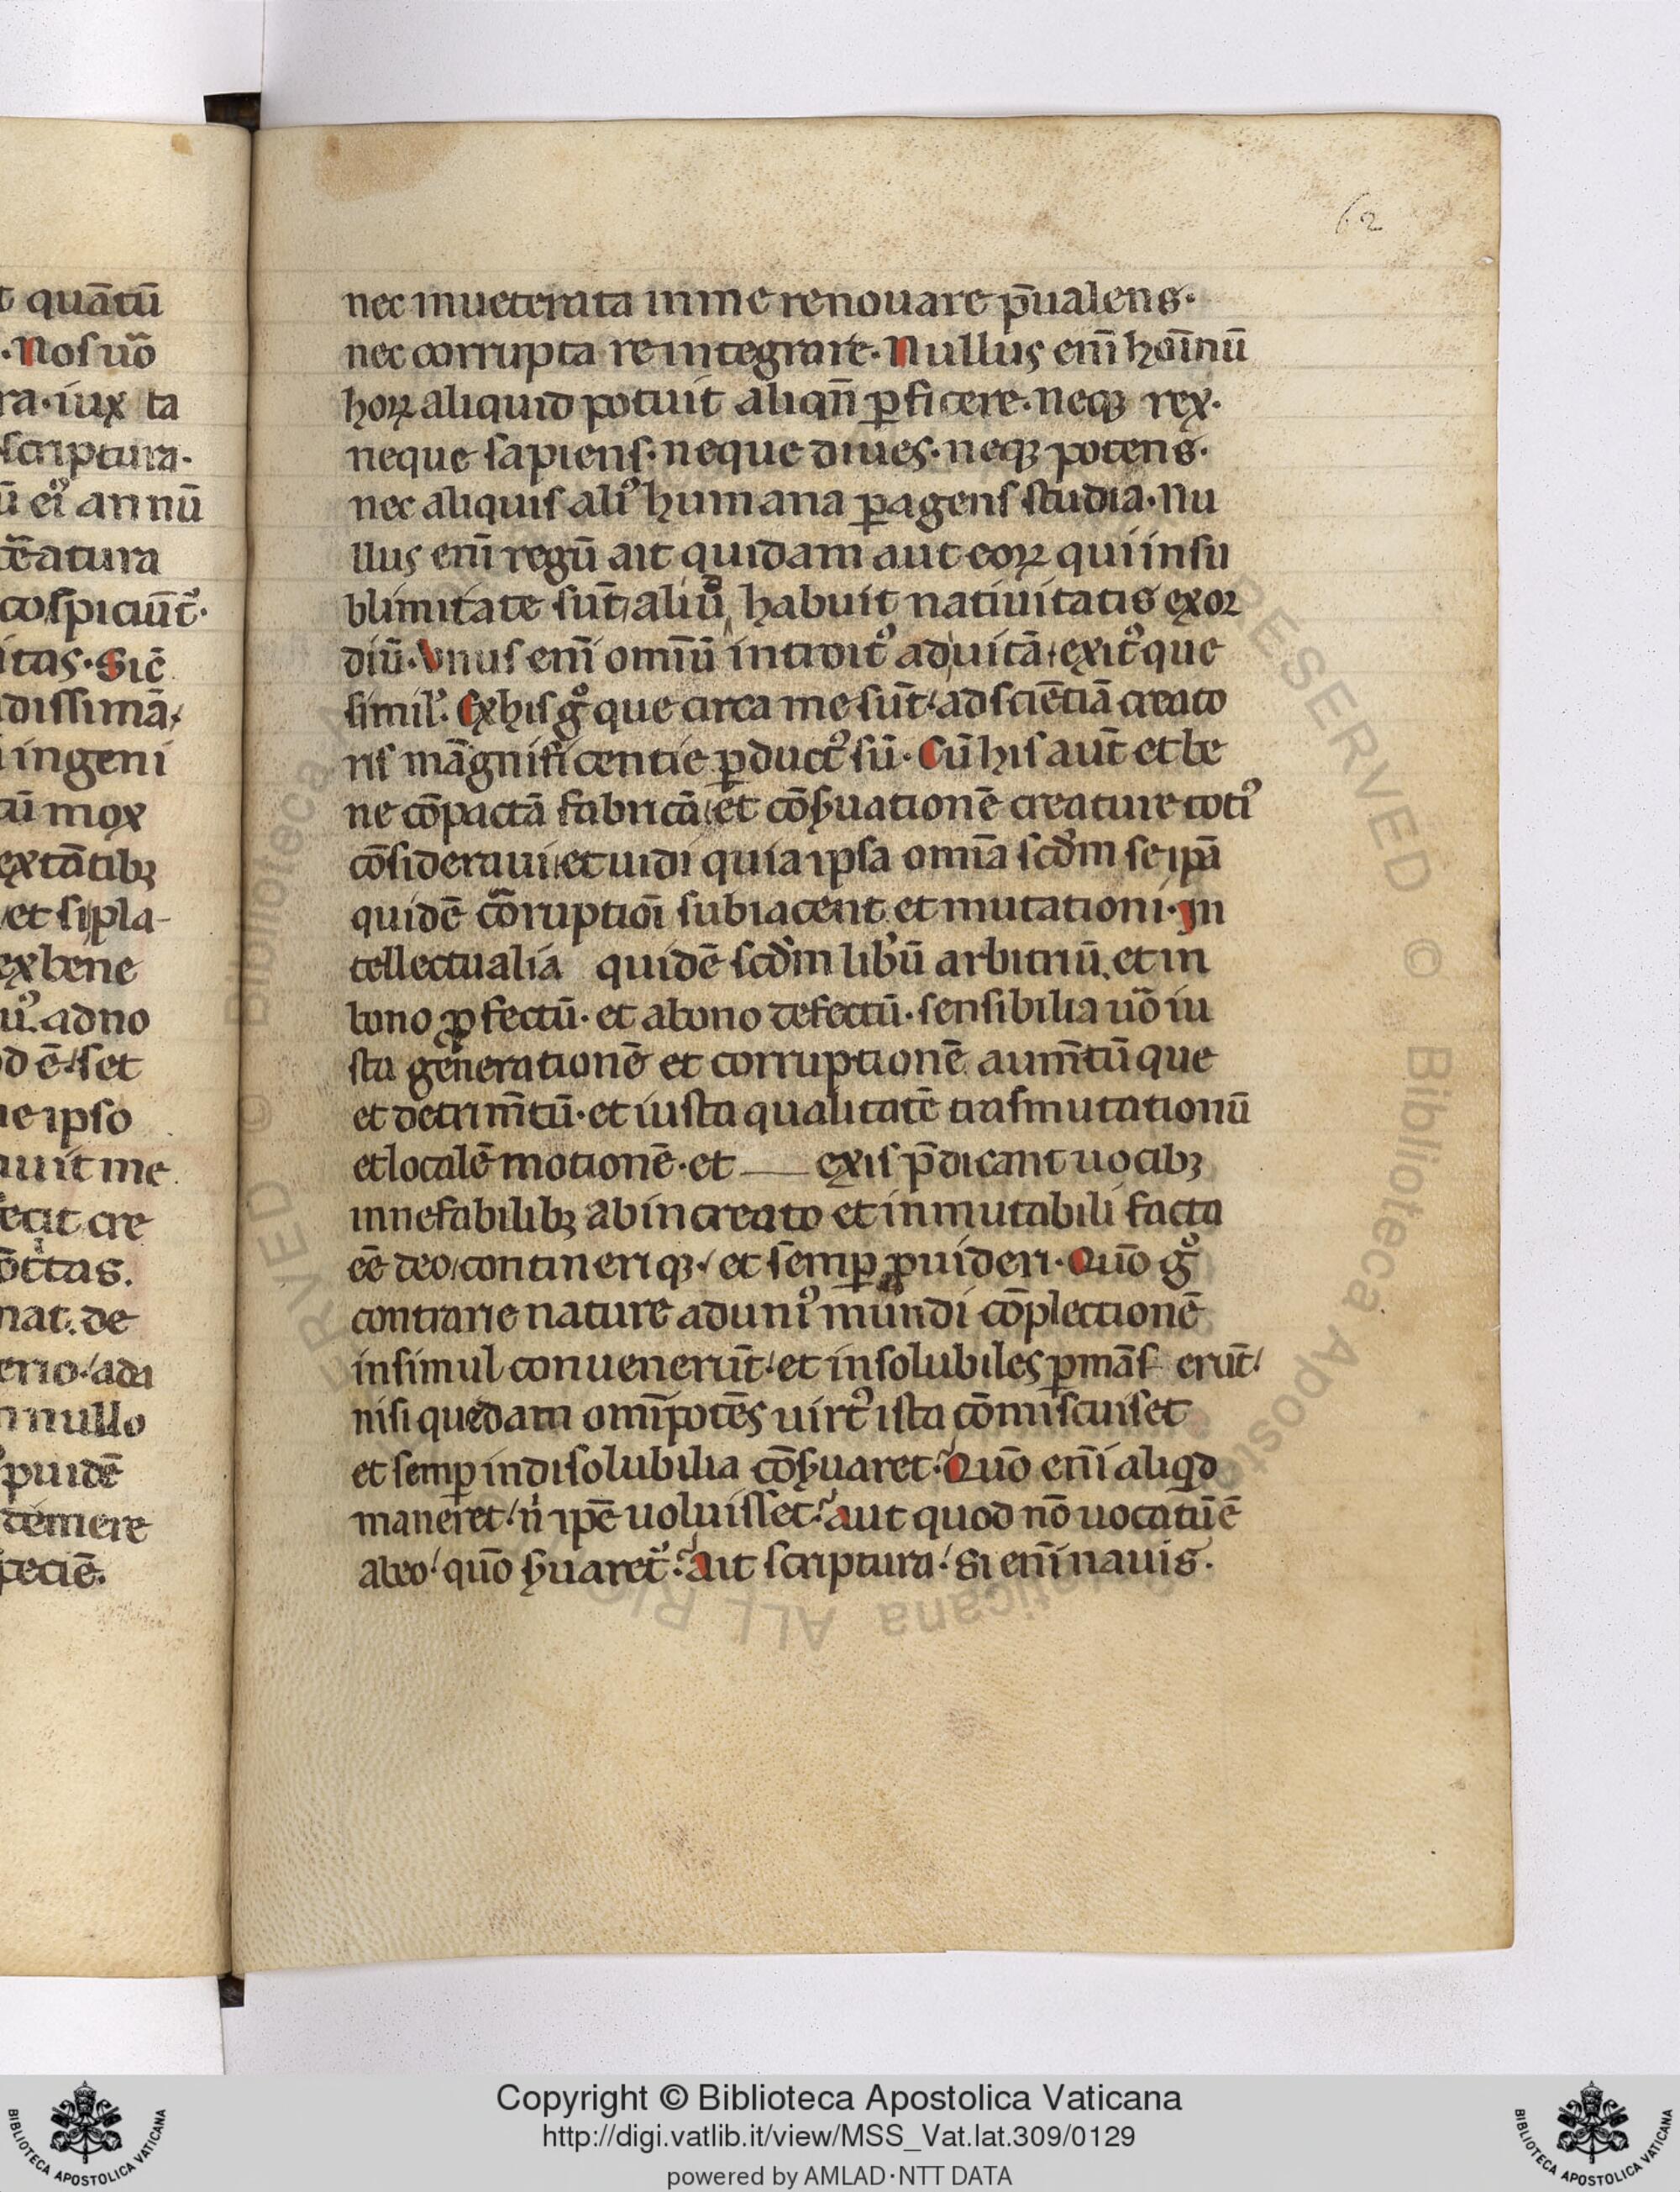 62
t quātū
.Nos uo᷑
ra. iux ta
scriptura.
annū
atura
cospiciūt᷒.
itas. Sic̄
dissimā/
ingeni
cū mox
extātibꝫ
et si pla-
ex bene
ad no
d ē/ set
ie ipso
auit me
ecit cre
nat. de
erio/ adi
n nullo
puidē
temere
peciē.
nec inueterata in me renouare p̄ualens.
nec corrupta re integrare. Nullus eni᷑ hoi᷑nū
hoꝝ aliquid potuit aliqn̄ ꝑficere. neqꝫ rex.
neque sapiens. neque diues. neqꝫ potens.
nec aliquis aliꝰ humana ꝑagens studia. Nu
llus eni᷑ regū ait quidam aut eoꝝ qui in su
blimitate su᷑t/ aliud habuit natiuitatis exor
diū. Vnus eni᷑ omi᷑ū introitꝰ ad uitā/ exitꝰque
simil᷒. Ex his gͦ que circa me su᷑t/ ad sciētiā creato
ris māgnificentie ꝑductꝰ sū. Cū his aut̄ et be
ne cōpactā fabricā/ et cōẜuationē creature totiꝰ
cōsideraui/ et uidi quia ipsa omi᷑a scd̓m se ip̄a
quidē cōruptioi᷑ subiacent et mutationi. In
tellectualia quidē scd̓m lib̓ū arbitriū, et in
bono ꝓfectū. et a bono defectū. sensibilia uo᷑ iu
sta generationē et corruptionē aum̄tū que
et detrim̄tū. et iusta qualitatē trasmutationū
et localē motionē. et ___ ex is p̄dicant uocibꝫ
innefabilibꝫ ab increato et inmutabili facta
ēe deo/ contineriqꝫ/ et semꝑ ꝓuideri. Quō gͦ
contrarie nature ad uniꝰ mundi cōplectionē
insimul conuenerūt/ et insolubiles ꝑmās erūt/
nisi quedam omi᷑potēs uirtꝰ ista cōmiscuiset
et semꝑ indisolubilia cōẜuaret. Quō eni᷑ aliqd
maneret/ n̓ ip̄e uoluisset? aut quod nō uocatū ē
abeo/ quō ẜuaretꝰ? Ait scriptura/ Si eni᷑ nauis.
Copyright © Biblioteca Apostolica Vaticana
http://digi.vatlib.it/view/MSS_Vat.lat.309/0129
powered by AMLAD·NTT DATA
BIBLIOTECA APOSTOLICA VATICANA
BIBLIOTECA APOSTOLICA VATICANA